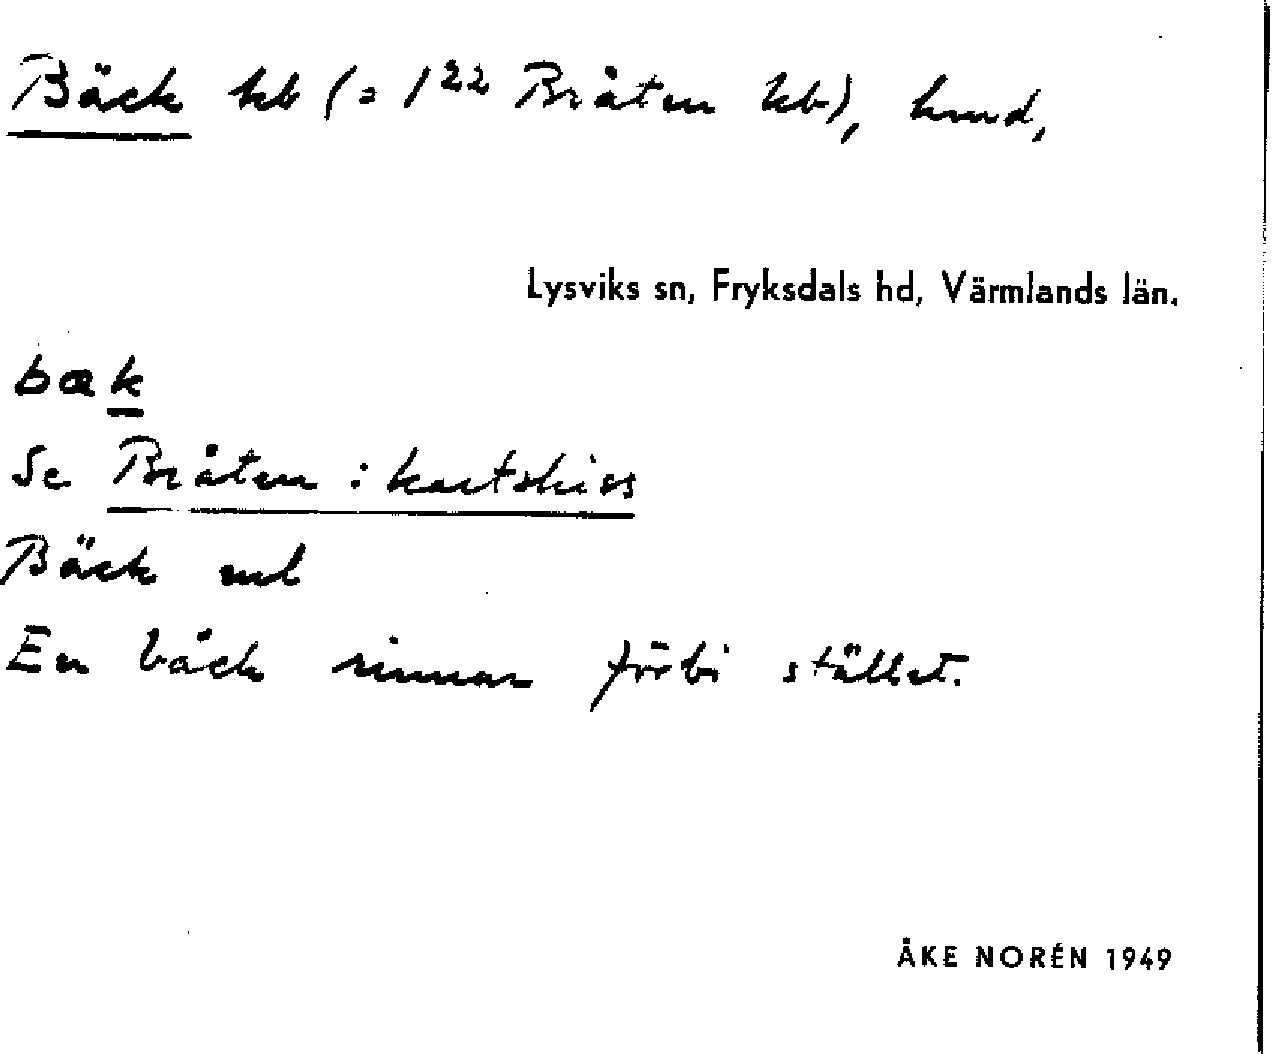 Bäck hb (= 1²² Bråten hb), hmd,
Lysviks sn, Fryksdals hd, Värmlands län.
bæk
Se Bråten : kartskiss
Bäck uul
En bäck rinner förbi stället.
ÅKE NORÉN 1949